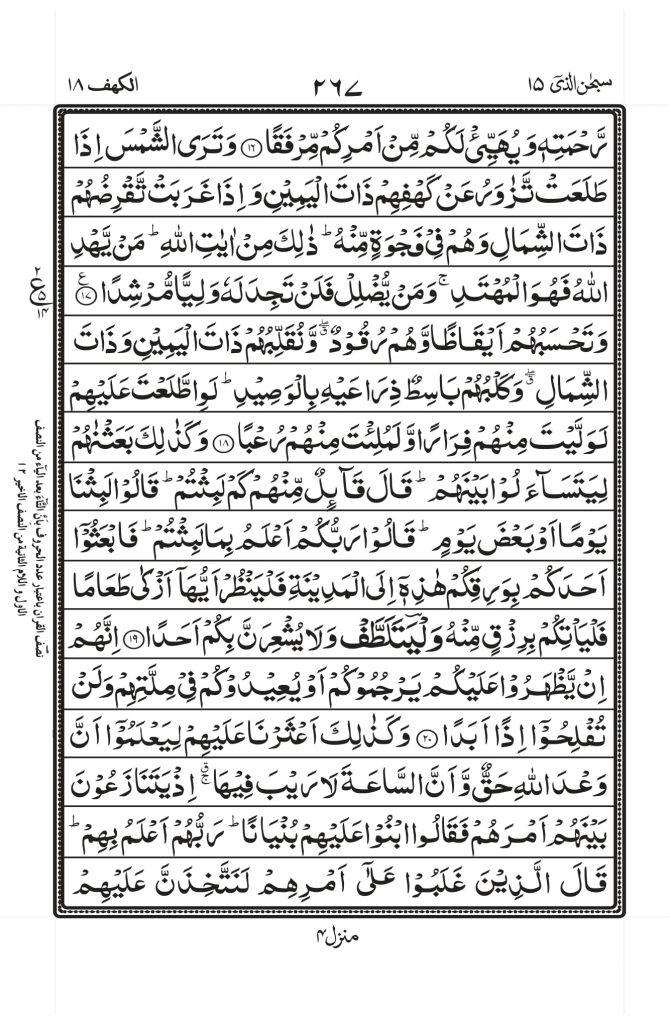 سبحٰن الذی ١٥
٢٦٧
الکہف ١٨
رَّحْمَتِهٖ وَيُهَيِّئْ لَكُمْ مِّنْ اَمْرِكُمْ مِّرْفَقًا ۝١٦ وَتَرَى الشَّمْسَ اِذَا
طَلَعَتْ تَّزٰوَرُ عَنْ كَهْفِهِمْ ذَاتَ الْيَمِيْنِ وَاِذَا غَرَبَتْ تَّقْرِضُهُمْ
ذَاتَ الشِّمَالِ وَهُمْ فِيْ فَجْوَةٍ مِّنْهُ ؕ ذٰلِكَ مِنْ اٰيٰتِ اللّٰهِ ؕ مَنْ يَّهْدِ
اللّٰهُ فَهُوَ الْمُهْتَدِ ۚ وَمَنْ يُّضْلِلْ فَلَنْ تَجِدَ لَهٗ وَلِيًّا مُّرْشِدًا ۝١٧ ع
وَتَحْسَبُهُمْ اَيْقَاظًا وَّهُمْ رُقُوْدٌ ۖ وَّنُقَلِّبُهُمْ ذَاتَ الْيَمِيْنِ وَذَاتَ
الشِّمَالِ ۖ وَكَلْبُهُمْ بَاسِطٌ ذِرَاعَيْهِ بِالْوَصِيْدِ ؕ لَوِ اطَّلَعْتَ عَلَيْهِمْ
لَوَلَّيْتَ مِنْهُمْ فِرَارًا وَّلَمُلِئْتَ مِنْهُمْ رُعْبًا ۝١٨ وَكَذٰلِكَ بَعَثْنٰهُمْ
لِيَتَسَآءَلُوْا بَيْنَهُمْ ؕ قَالَ قَآئِلٌ مِّنْهُمْ كَمْ لَبِثْتُمْ ؕ قَالُوْا لَبِثْنَا
يَوْمًا اَوْ بَعْضَ يَوْمٍ ؕ قَالُوْا رَبُّكُمْ اَعْلَمُ بِمَا لَبِثْتُمْ ؕ فَابْعَثُوْٓا
اَحَدَكُمْ بِوَرِقِكُمْ هٰذِهٖٓ اِلَى الْمَدِيْنَةِ فَلْيَنْظُرْ اَيُّهَآ اَزْكٰى طَعَامًا
فَلْيَاْتِكُمْ بِرِزْقٍ مِّنْهُ وَلْيَتَلَطَّفْ وَلَا يُشْعِرَنَّ بِكُمْ اَحَدًا ۝١٩ اِنَّهُمْ
اِنْ يَّظْهَرُوْا عَلَيْكُمْ يَرْجُمُوْكُمْ اَوْ يُعِيْدُوْكُمْ فِيْ مِلَّتِهِمْ وَلَنْ
تُفْلِحُوْٓا اِذًا اَبَدًا ۝٢٠ وَكَذٰلِكَ اَعْثَرْنَا عَلَيْهِمْ لِيَعْلَمُوْٓا اَنَّ
وَعْدَ اللّٰهِ حَقٌّ وَّاَنَّ السَّاعَةَ لَا رَيْبَ فِيْهَا ۚ اِذْ يَتَنَازَعُوْنَ
بَيْنَهُمْ اَمْرَهُمْ فَقَالُوا ابْنُوْا عَلَيْهِمْ بُنْيَانًا ؕ رَبُّهُمْ اَعْلَمُ بِهِمْ ؕ
قَالَ الَّذِيْنَ غَلَبُوْا عَلٰٓى اَمْرِهِمْ لَنَتَّخِذَنَّ عَلَيْهِمْ
نصف القرآن باعتبار عدد الحروف بأن التّاء بعد الیاء من النصف
الاول و اللام الثانیة من النصف الاخیر ١٢
منزل ٤